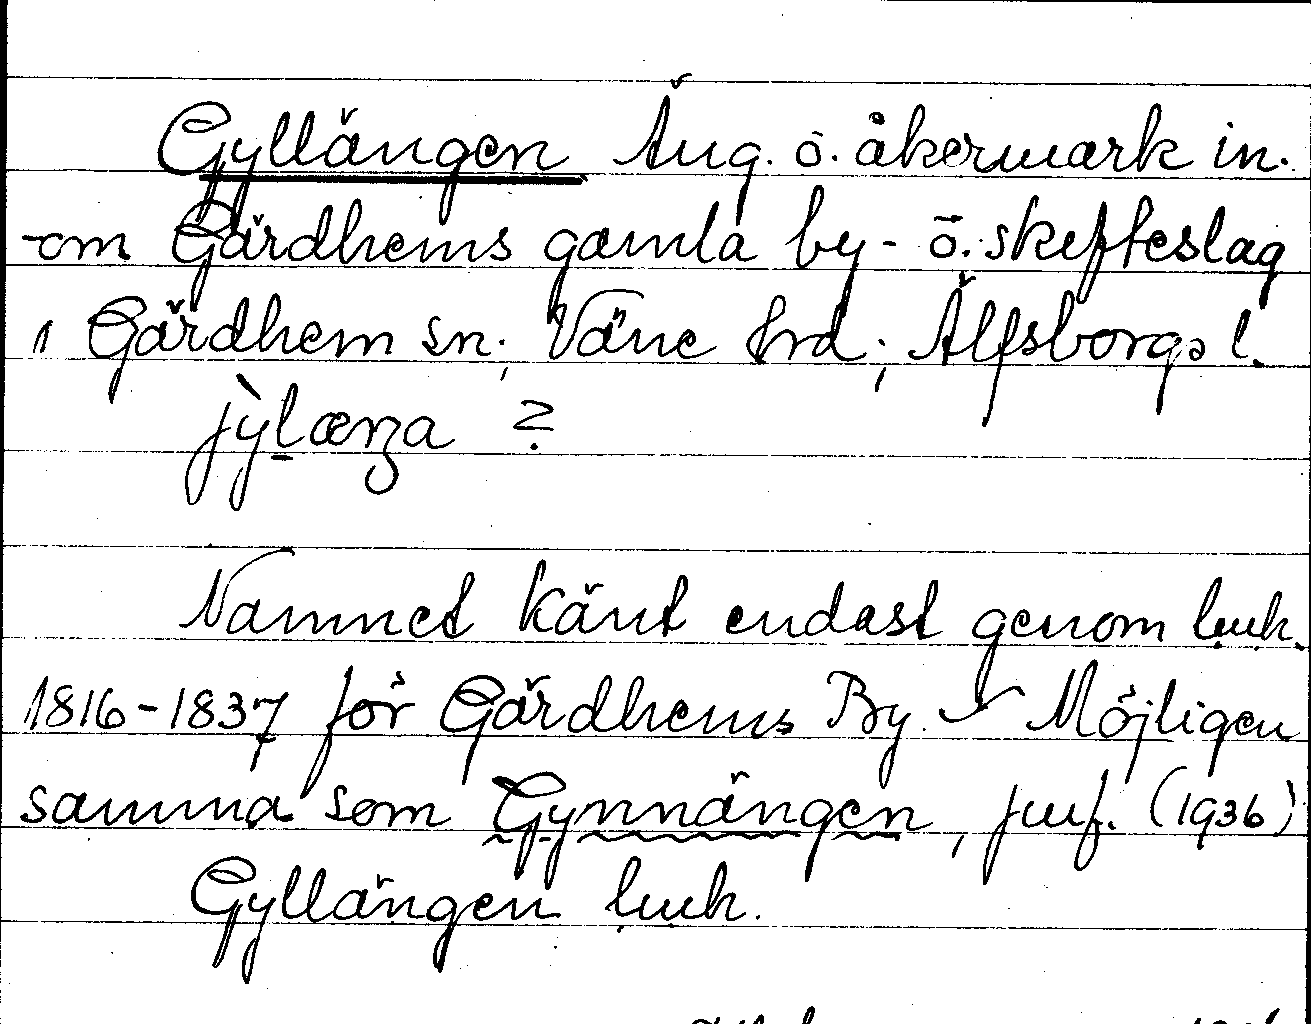 Gyllängen Äng. o. åkermark in-
om Gärdhems gamla by- o. skifteslag
i Gärdhem sn; Väne hrd; Älfsborgs l.
jỳlæŋa ?
Namnet känt endast genom luk.
1816-1837 för Gärdhems By. Möjligen
samma som Gynnängen, jmf. (1936)
Gyllängen luk.